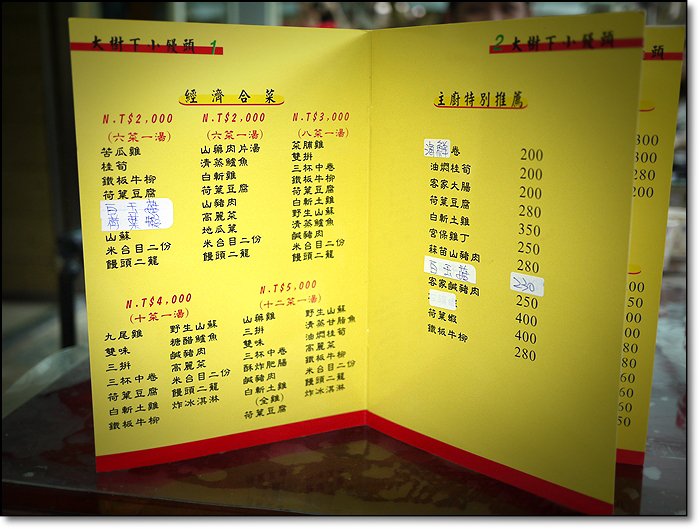 大樹下小饅頭 1
經濟合菜
N.T$2,000
(六菜一湯)
苦瓜雞
桂筍
鐵板牛柳
荷葉豆腐
山蘇
米台目二份
饅頭二籠
N.T$2,000
(六菜一湯)
山藥肉片湯
清蒸鱸魚
白斬雞
荷葉豆腐
山豬肉
高麗菜
地瓜葉
米台目二份
饅頭二籠
N.T$3,000
(八菜一湯)
菜脯雞
雙拼
三杯中卷
鐵板牛柳
荷葉豆腐
白斬土雞
野生山蘇
清蒸鱸魚
鹹豬肉
米台目二份
饅頭二籠
N.T$4,000
(十菜一湯)
九尾雞
雙味
三拼
三杯中卷
荷葉豆腐
白斬土雞
鐵板牛柳
野生山蘇
糖醋鱸魚
鹹豬肉
高麗菜
米台目二份
饅頭二籠
炸冰淇淋
N.T$5,000
(十二菜一湯)
山藥雞
三拼
雙味
三杯中卷
酥炸肥腸
鹹豬肉
白斬土雞
(全雞)
荷葉豆腐
野生山蘇
清蒸甘脂魚
油燜桂筍
高麗菜
鐵板牛柳
米台目二份
饅頭二籠
炸冰淇淋
2 大樹下小饅頭
主廚特別推薦
海鮮卷 200
油燜桂筍 200
客家大腸 200
荷葉豆腐 280
白斬土雞 350
宮保雞丁 250
蒜苗山豬肉 280
230
客家鹹豬肉 250
400
荷葉蝦 400
鐵板牛柳 280
頭
300
300